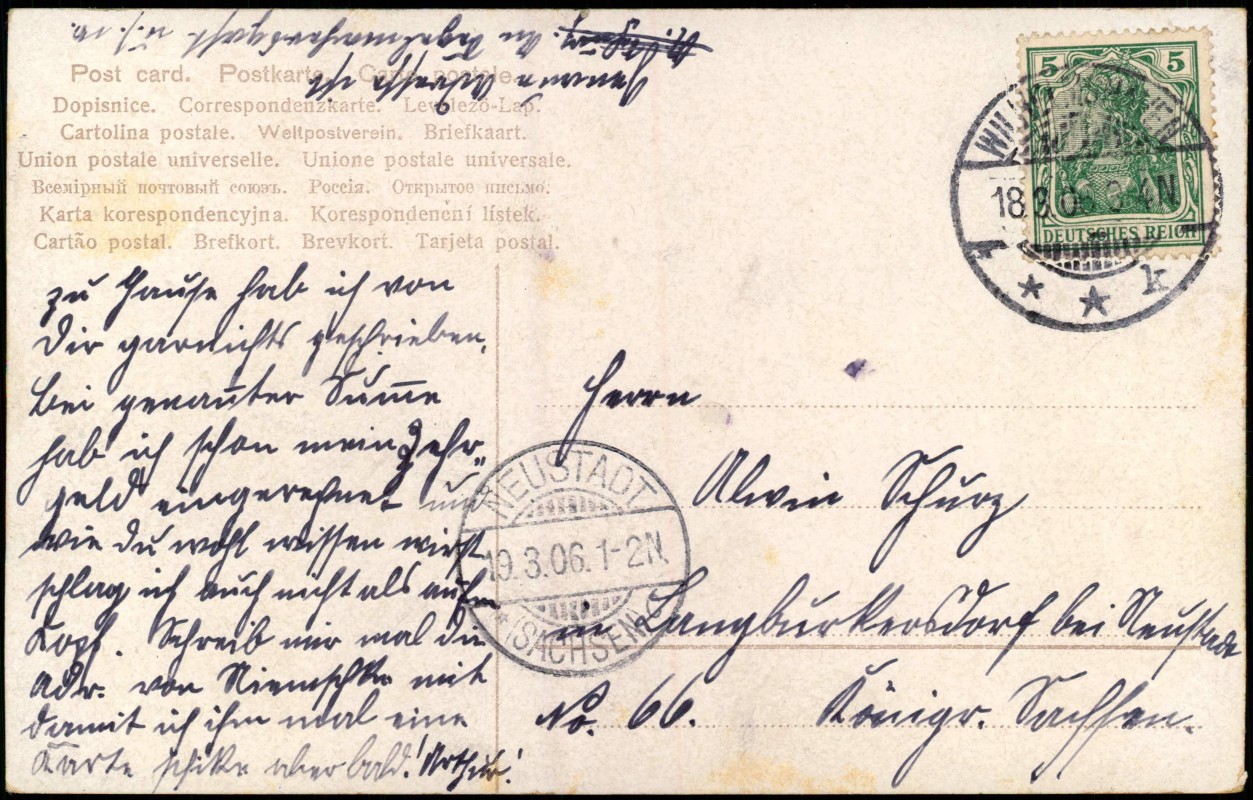 Meine Adresse ist
An Tagelmachersgast u.s.w.
Post card. Postkarte. Carte postale.
Dopisnice. Correspondenzkarte. Levelező-Lap.
Cartolina postale. Weltpostverein. Briefkaart.
Union postale universelle. Unione postale universale.
Всемірный почтовый союзъ. Россія. Открытое письмо.
Karta korespondencyjna. Korespondenční lístek.
Cartão postal. Brefkort. Brevkort. Tarjeta postal.
5 5
DEUTSCHES REICH
WILHELMSHAVEN
18.3.06. 3-4N
1 * * k
zu Hause hab ich von
dir garnichts geschrieben.
bei genannter Summe
hab ich schon mein Zehr-
geld eingerechnet und
wie du wohl wissen wirst
schlag ich auch nicht als auf'n
Kopf. Schreib mir mal die
Adr. von Niemschke mit
damit ich ihm mal eine
Karte schike aber bald! Arthur!
NEUSTADT
19.3.06. 1-2N.
* (SACHSEN)
Herrn
Alwin Schurz
in Langburkersdorf bei Neustadt
No. 66. Königr. Sachsen.